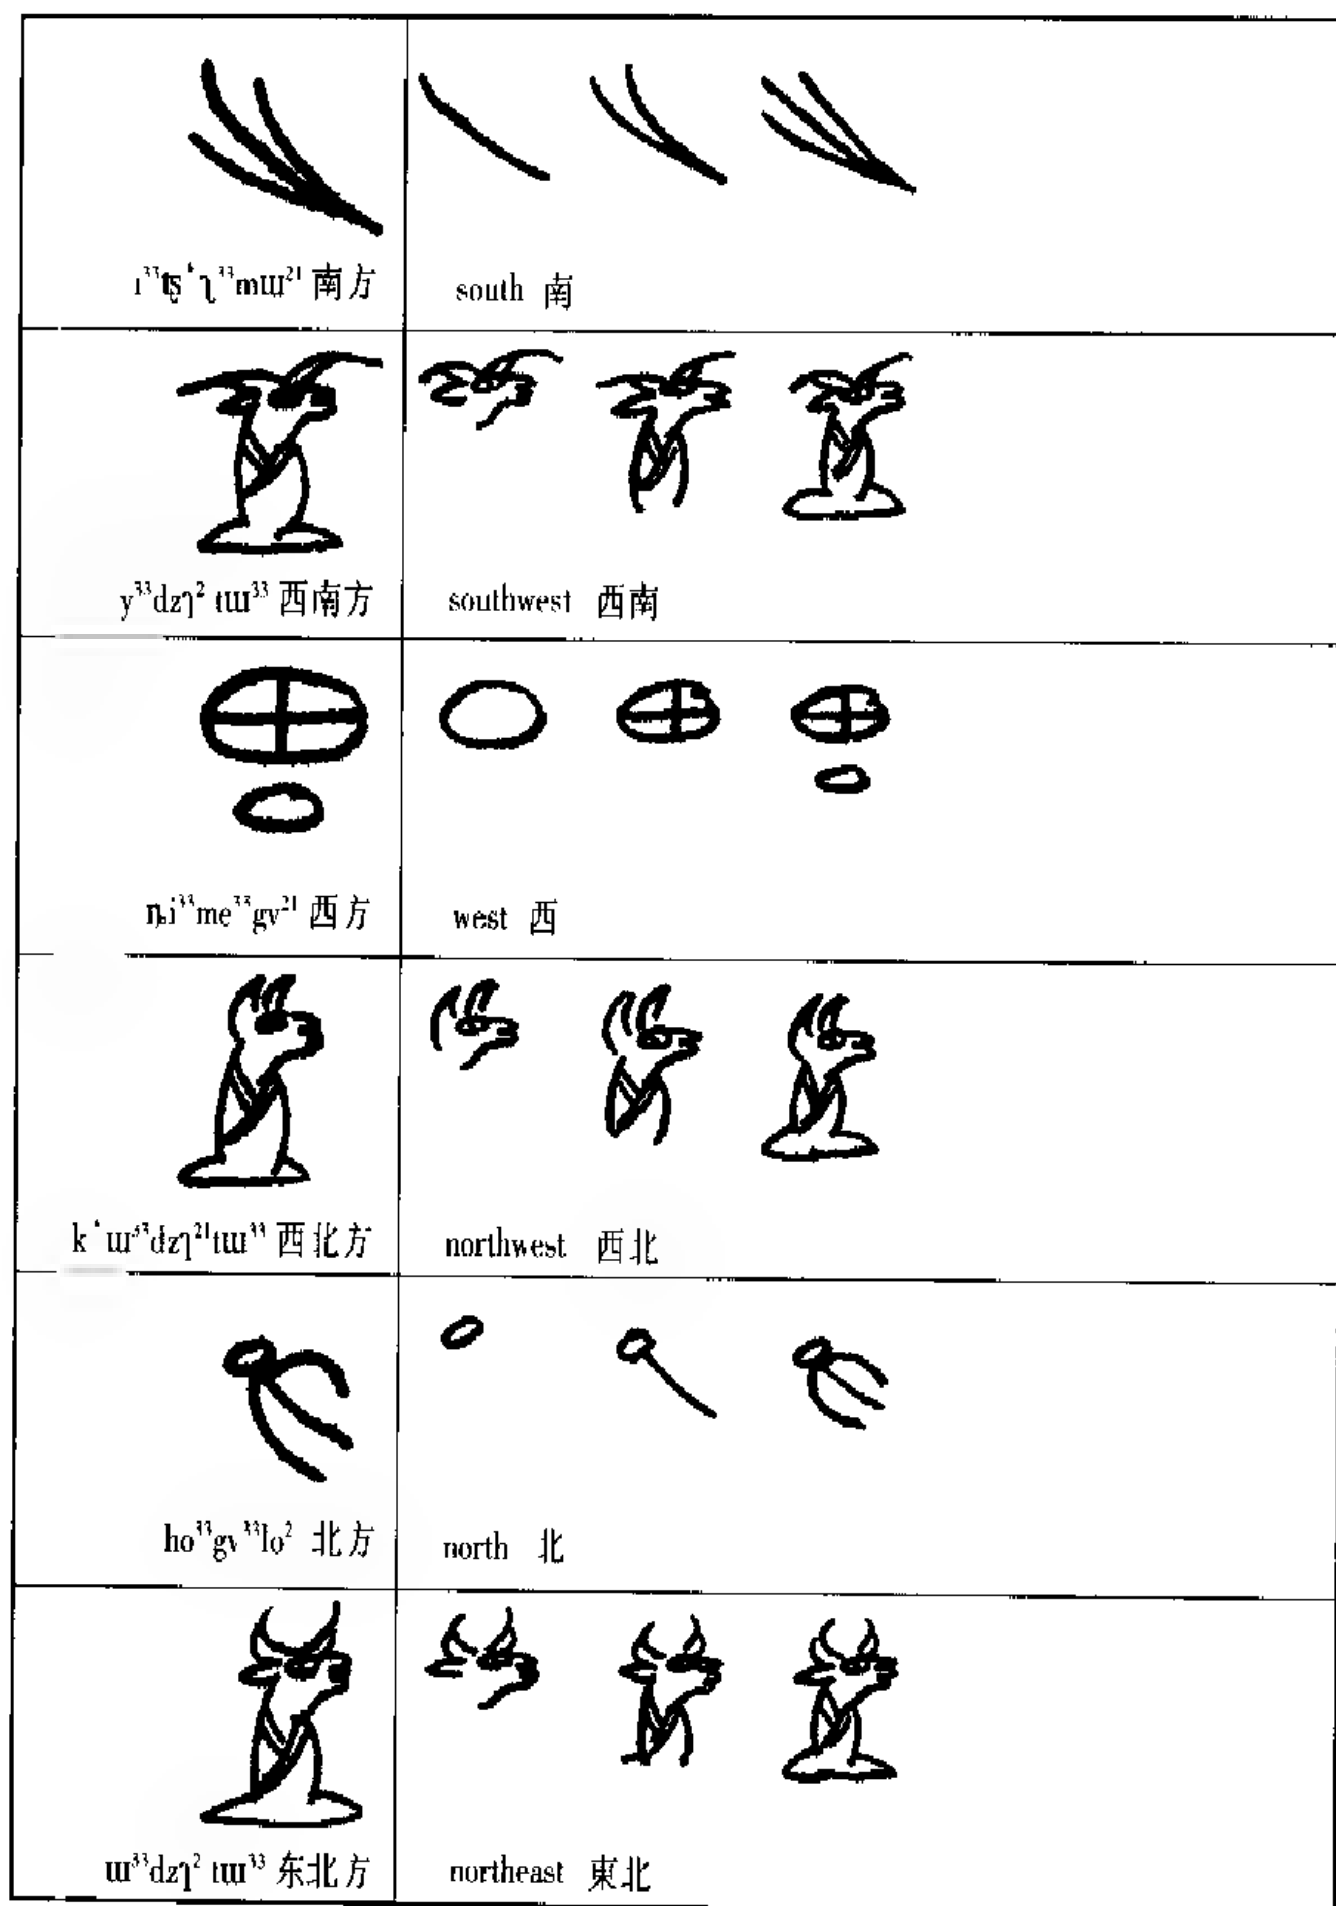 ı³³tʂ‘ʅ³³mɯ²¹ 南方
south 南
y³³dzʅ² tɯ³³ 西南方
southwest 西南
ȵi³³me³³gv²¹ 西方
west 西
k‘ɯ³³dzʅ²¹tɯ³³ 西北方
northwest 西北
ho³³gv³³lo² 北方
north 北
ɯ³³dzʅ² tɯ³³ 东北方
northeast 東北